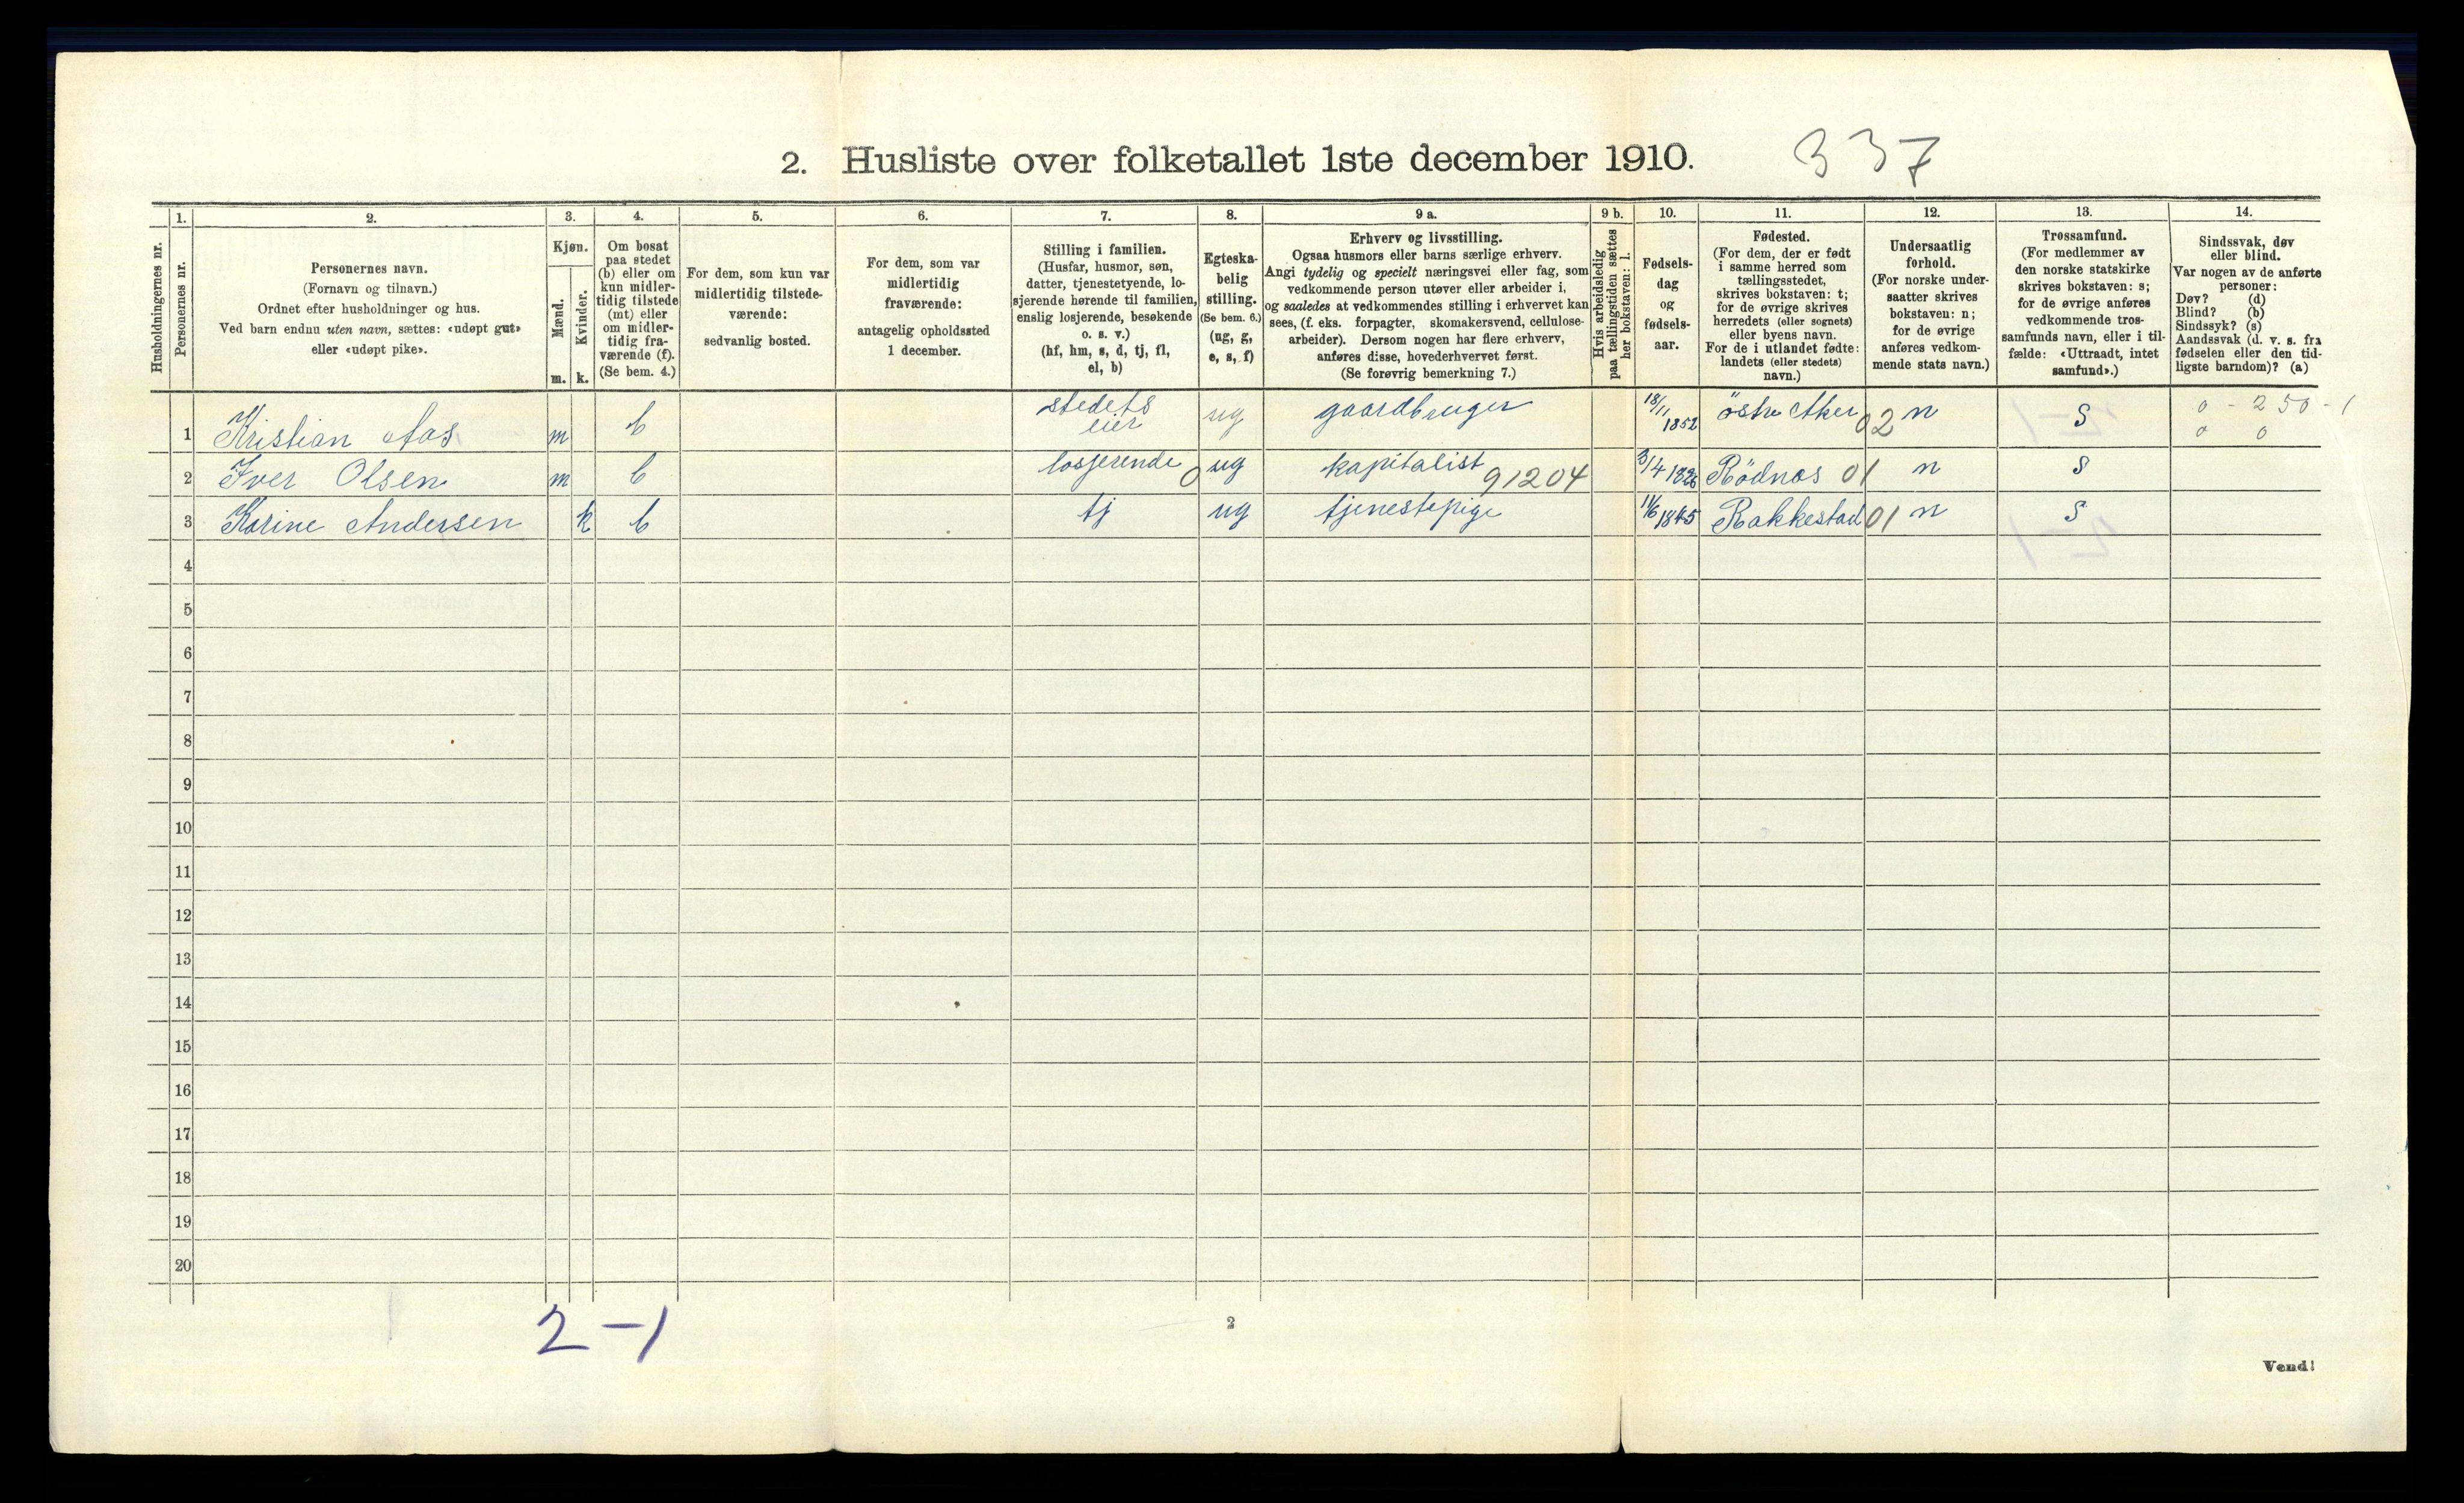 2. Husliste over folketallet 1ste december 1910. 337
Husholdningernes nr.
1.
Personernes nr.
2.
Personernes navn.
(Fornavn og tilnavn.)
Ordnet efter husholdninger og hus.
Ved barn endnu uten navn, sættes: «udøpt gut»
eller «udøpt pike».
3.
Kjøn.
Mænd.
Kvinder.
m. k.
4.
Om bosat
paa stedet
(b) eller om
kun midler-
tidig tilstede
(mt) eller
om midler-
tidig fra-
værende (f).
(Se bem. 4.)
5.
For dem, som kun var
midlertidig tilstede-
værende:
sedvanlig bosted.
6.
For dem, som var
midlertidig
fraværende:
antagelig opholdssted
1 december.
7.
Stilling i familien.
(Husfar, husmor, søn,
datter, tjenestetyende, lo-
sjerende hørende til familien,
enslig losjerende, besøkende
o. s. v.)
(hf, hm, s, d, tj, fl,
el, b)
8.
Egteska-
belig
stilling.
(Se bem. 6.)
(ug, g,
e, s, f)
9 a.
Erhverv og livsstilling.
Ogsaa husmors eller barns særlige erhverv.
Angi tydelig og specielt næringsvei eller fag, som
vedkommende person utøver eller arbeider i,
og saaledes at vedkommendes stilling i erhvervet kan
sees, (f. eks. forpagter, skomakersvend, cellulose-
arbeider). Dersom nogen har flere erhverv,
anføres disse, hovederhvervet først.
(Se forøvrig bemerkning 7.)
9 b.
Hvis arbeidsledig
paa tællingstiden sættes
her bokstaven: l.
10.
Fødsels-
dag
og
fødsels-
aar.
11.
Fødested.
(For dem, der er født
i samme herred som
tællingsstedet,
skrives bokstaven: t;
for de øvrige skrives
herredets (eller sognets)
eller byens navn.
For de i utlandet fødte:
landets (eller stedets)
navn.)
12.
Undersaatlig
forhold.
(For norske under-
saatter skrives
bokstaven: n;
for de øvrige
anføres vedkom-
mende stats navn.)
13.
Trossamfund.
(For medlemmer av
den norske statskirke
skrives bokstaven: s;
for de øvrige anføres
vedkommende tros-
samfunds navn, eller i til-
fælde: «Uttraadt, intet
samfund».)
14.
Sindssvak, døv
eller blind.
Var nogen av de anførte
personer:
Døv? (d)
Blind? (b)
Sindssyk? (s)
Aandssvak (d. v. s. fra
fødselen eller den tid-
ligste barndom)? (a)
1 Kristian Aas m b stedets eier ug gaardbruger 18/11 1852 östre Aker 02 n S 0 - 250 - 1
0 0
2 Iver Olsen m b losjerende 0 ug kapitalist 91204 3/4 1826 Rödnæs 01 n S
3 Karine Andersen k b tj ug tjenestepige 11/6 1845 Rakkestad 01 n S
4
5
6
7
8
9
10
11
12
13
14
15
16
17
18
19
20
2-1
2
Vend!